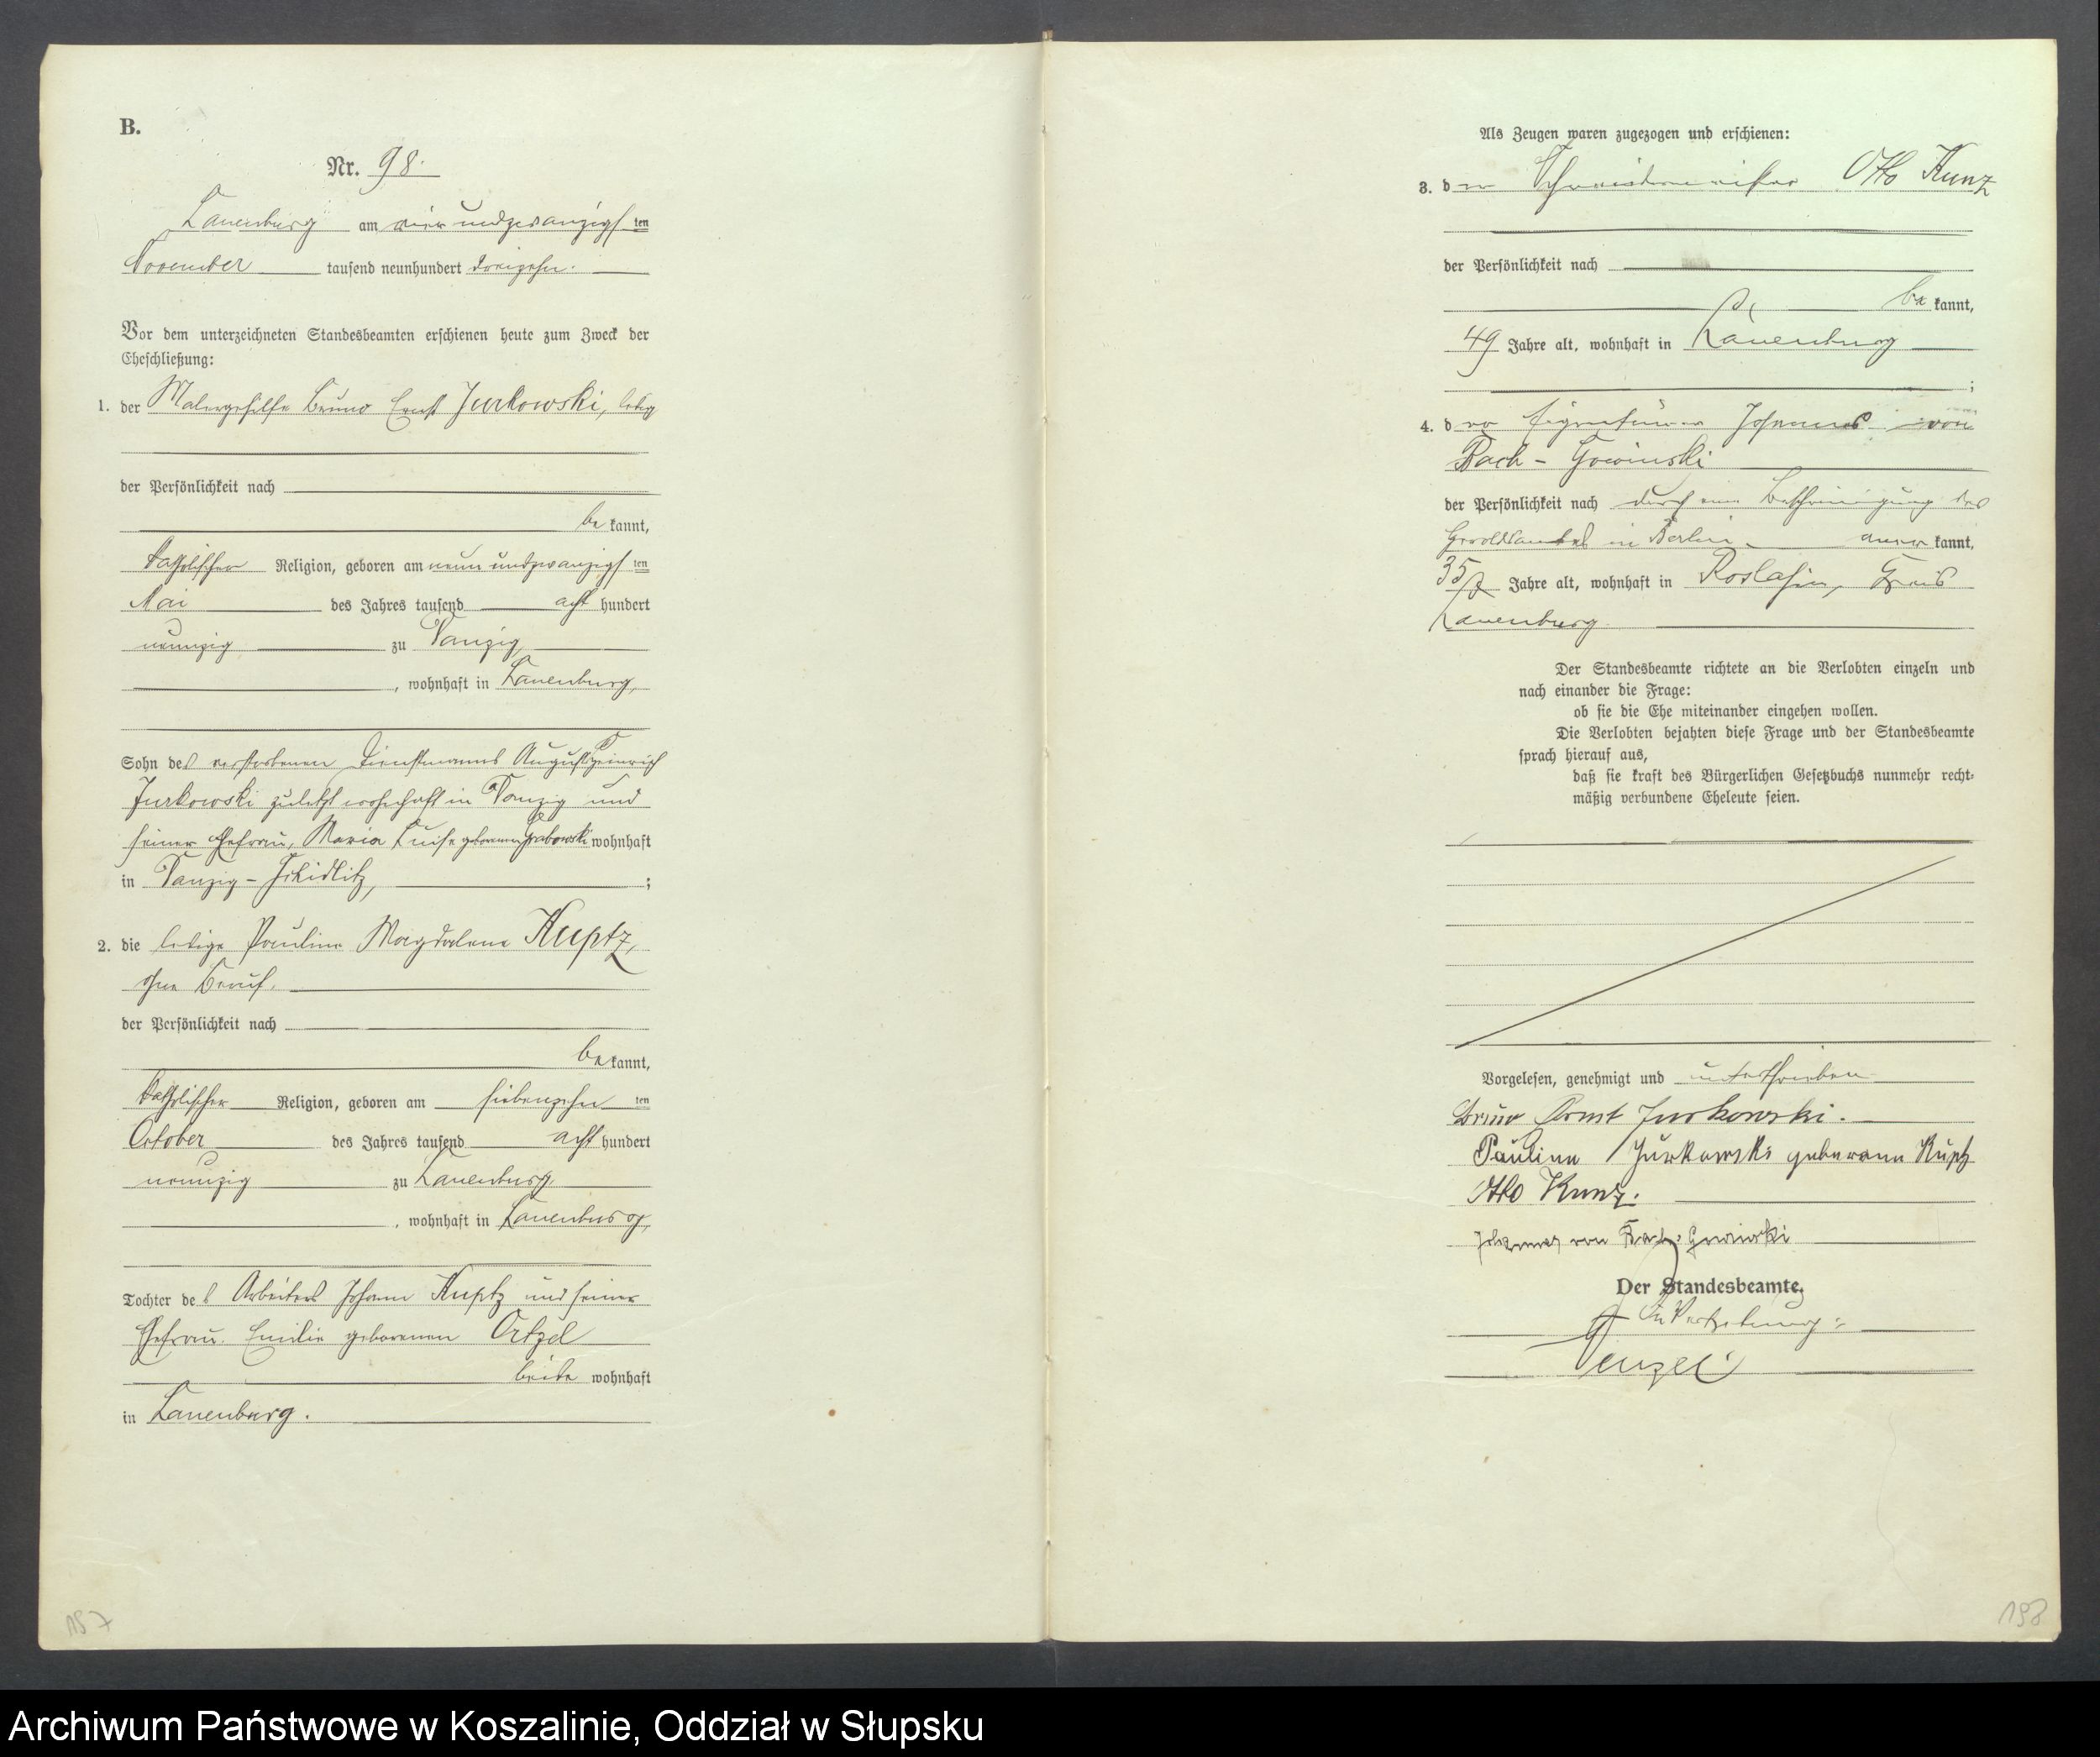 B.
Nr. 98.
Lauenburg am vierundzwanzigsten
November tausend neunhundert dreizehn.
Vor dem unterzeichneten Standesbeamten erschienen heute zum Zweck der
Eheschließung:
1. der Malergehilfe Bruno Ernst Jurkowski, ledig
der Persönlichkeit nach
be kannt,
katholischer Religion, geboren am neunundzwanzigsten
Mai des Jahres tausend acht hundert
neunzig zu Danzig,
, wohnhaft in Lauenburg,
Sohn des verstorbenen Dienstmanns August Heinrich
Jurkowski zuletzt wohnhaft in Danzig und
seiner Ehefrau, Maria Luise geborenen Grabowski wohnhaft
in Danzig - Schidlitz, ;
2. die ledige Pauline Magdalene Kuptz,
ohne Beruf,
der Persönlichkeit nach
be kannt,
katholischer Religion, geboren am siebenzehnten
October des Jahres tausend acht hundert
neunzig zu Lauenburg
, wohnhaft in Lauenburg,
Tochter des Arbeiters Johann Kuptz und seiner
Ehefrau Emilie geborenen Ortzel
beide wohnhaft
in Lauenburg.
157
Als Zeugen waren zugezogen und erschienen:
3. der Otto Kunz
der Persönlichkeit nach
be kannt,
49 Jahre alt, wohnhaft in Lauenburg
;
4. der Eigentümer Johannes von
Bach - Gowinski
der Persönlichkeit nach durch eine Bescheinigung des
Heroldsamtes in Berlin aner kannt,
35 Jahre alt, wohnhaft in Roslasin, Kreis
Lauenburg
Der Standesbeamte richtete an die Verlobten einzeln und
nach einander die Frage:
ob sie die Ehe miteinander eingehen wollen.
Die Verlobten bejahten diese Frage und der Standesbeamte
sprach hierauf aus,
daß sie kraft des Bürgerlichen Gesetzbuchs nunmehr recht-
mäßig verbundene Eheleute seien.
Vorgelesen, genehmigt und unterschrieben
Bruno Ernst Jurkowski.
Pauline Jurkowski geborene Kuptz
Otto Kunz.
Johannes von Bach-Gowinski
Der Standesbeamte.
In Vertretung:
198
Archiwum Państwowe w Koszalinie, Oddział w Słupsku